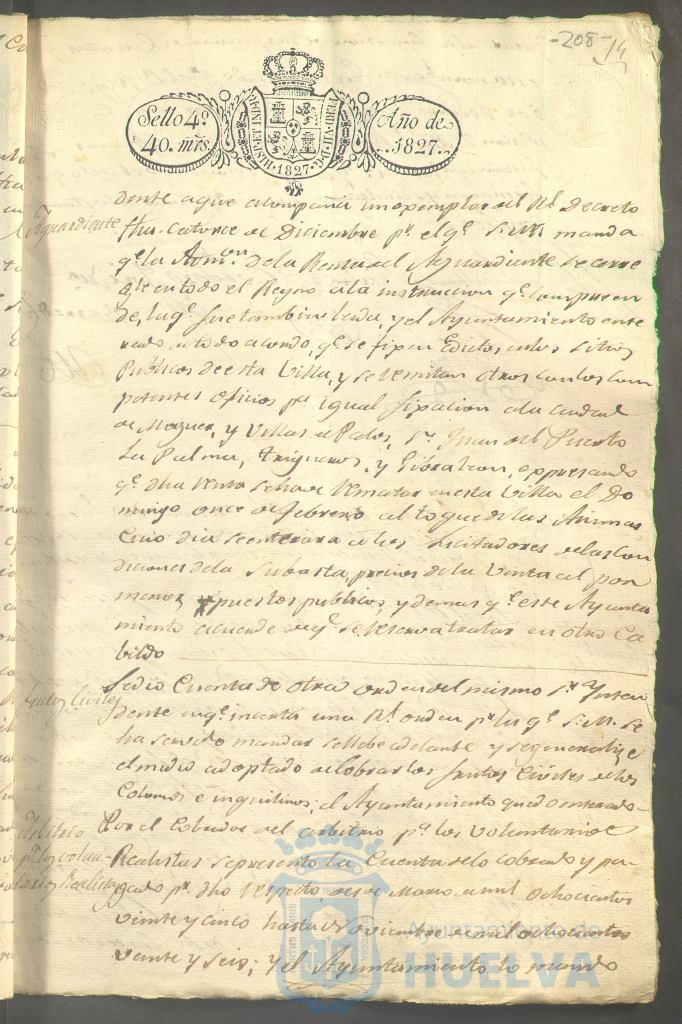 -208-
14
Sello 4º
40. mrs.
HISP. ET IND. R.
FERD. VII. D. G.
1827
Año de
1827.
Aguardiente
dente aque acompaña un exemplar del Rl. Decreto
fha. Catorce de Diciembre pr. el qe. S. M. manda
qe. la Admon. de la Renta del Aguardiente se arre
gle en todo el Reyno a la instruccion qe. compreen
de, la qe. fue tambien leida, y el Ayuntamiento ente
rado de todo acordo, qe. se fixen Edictos en los Sitios
Publicos de esta Villa, y se remitan otros con los com
petentes oficios pa. igual fixacion a la ciudad
de Moguer, y Villas de Palos, Sn. Juan del Puerto
La Palma, Trigueros, y Gibraleon, expresando
qe. dha renta se ha de rematar en esta Villa el Do
mingo once de Febrero al toque de las Animas
Cuio dia se enterara a los Licitadores de las Con
diciones de la Subasta, precios de la Venta al por
menor, puestos publicos, y demas qe. este Ayunta
miento acuerde de qe. se reserva tratar en otro Ca
bildo
Frutos Civiles
Se dio Cuenta de otra orden del mismo Sr. Inten
dente en qe. inserta una Rl. orden pr. la qe. S. M. se
ha servido mandar se llebe adelante y se generalize
el medio adoptado de cobrar los frutos Civiles de los
Colonos e inquilinos; el Ayuntamiento quedo enterado-
Arbitrio
pa. los volun-
tarios Realistas
Por el Cobrador del arbitrio pa. los Voluntarios
Realistas se presento la Cuenta de lo cobrado y pa-
gado pr. dho respecto, desde Marzo de mil ochocientos
veinte y cinco hasta Noviembre de mil ochocientos
veinte y seis; y el Ayuntamiento la mando
Ayuntamiento de
HUELVA